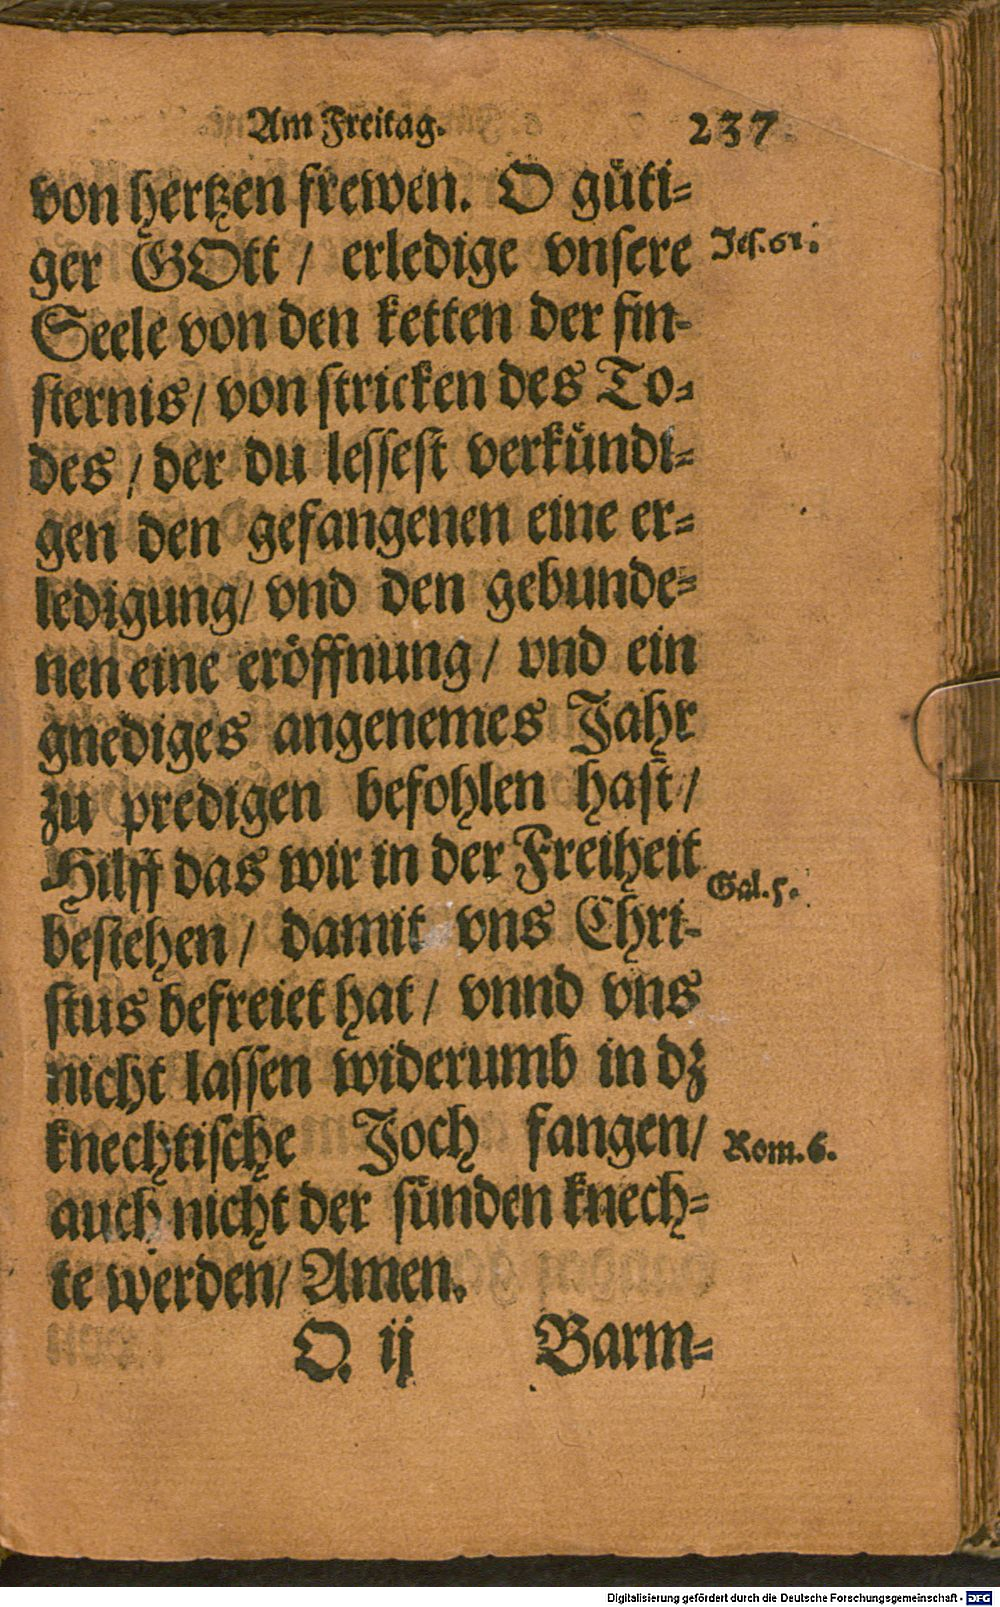 Am Freitag. 237
von hertzen frewen. O güti-
ger GOtt / erledige vnsere Jes. 61.
Seele von den ketten der fin-
sternis / von stricken des To-
des / der du lessest verkündi-
gen den gefangenen eine er-
ledigung / vnd den gebunde-
nen eine eröffnung / vnd ein
gnediges angenemes Jahr
zu predigen befohlen hast /
Hilff das wir in der Freiheit Gal. 5.
bestehen / damit vns Chri-
stus befreiet hat / vnnd vns
nicht lassen widerumb in dz
knechtische Joch fangen / Rom. 6.
auch nicht der sünden knech-
te werden / Amen.
O. ij Barm-
Digitalisierung gefördert durch die Deutsche Forschungsgemeinschaft - DFG